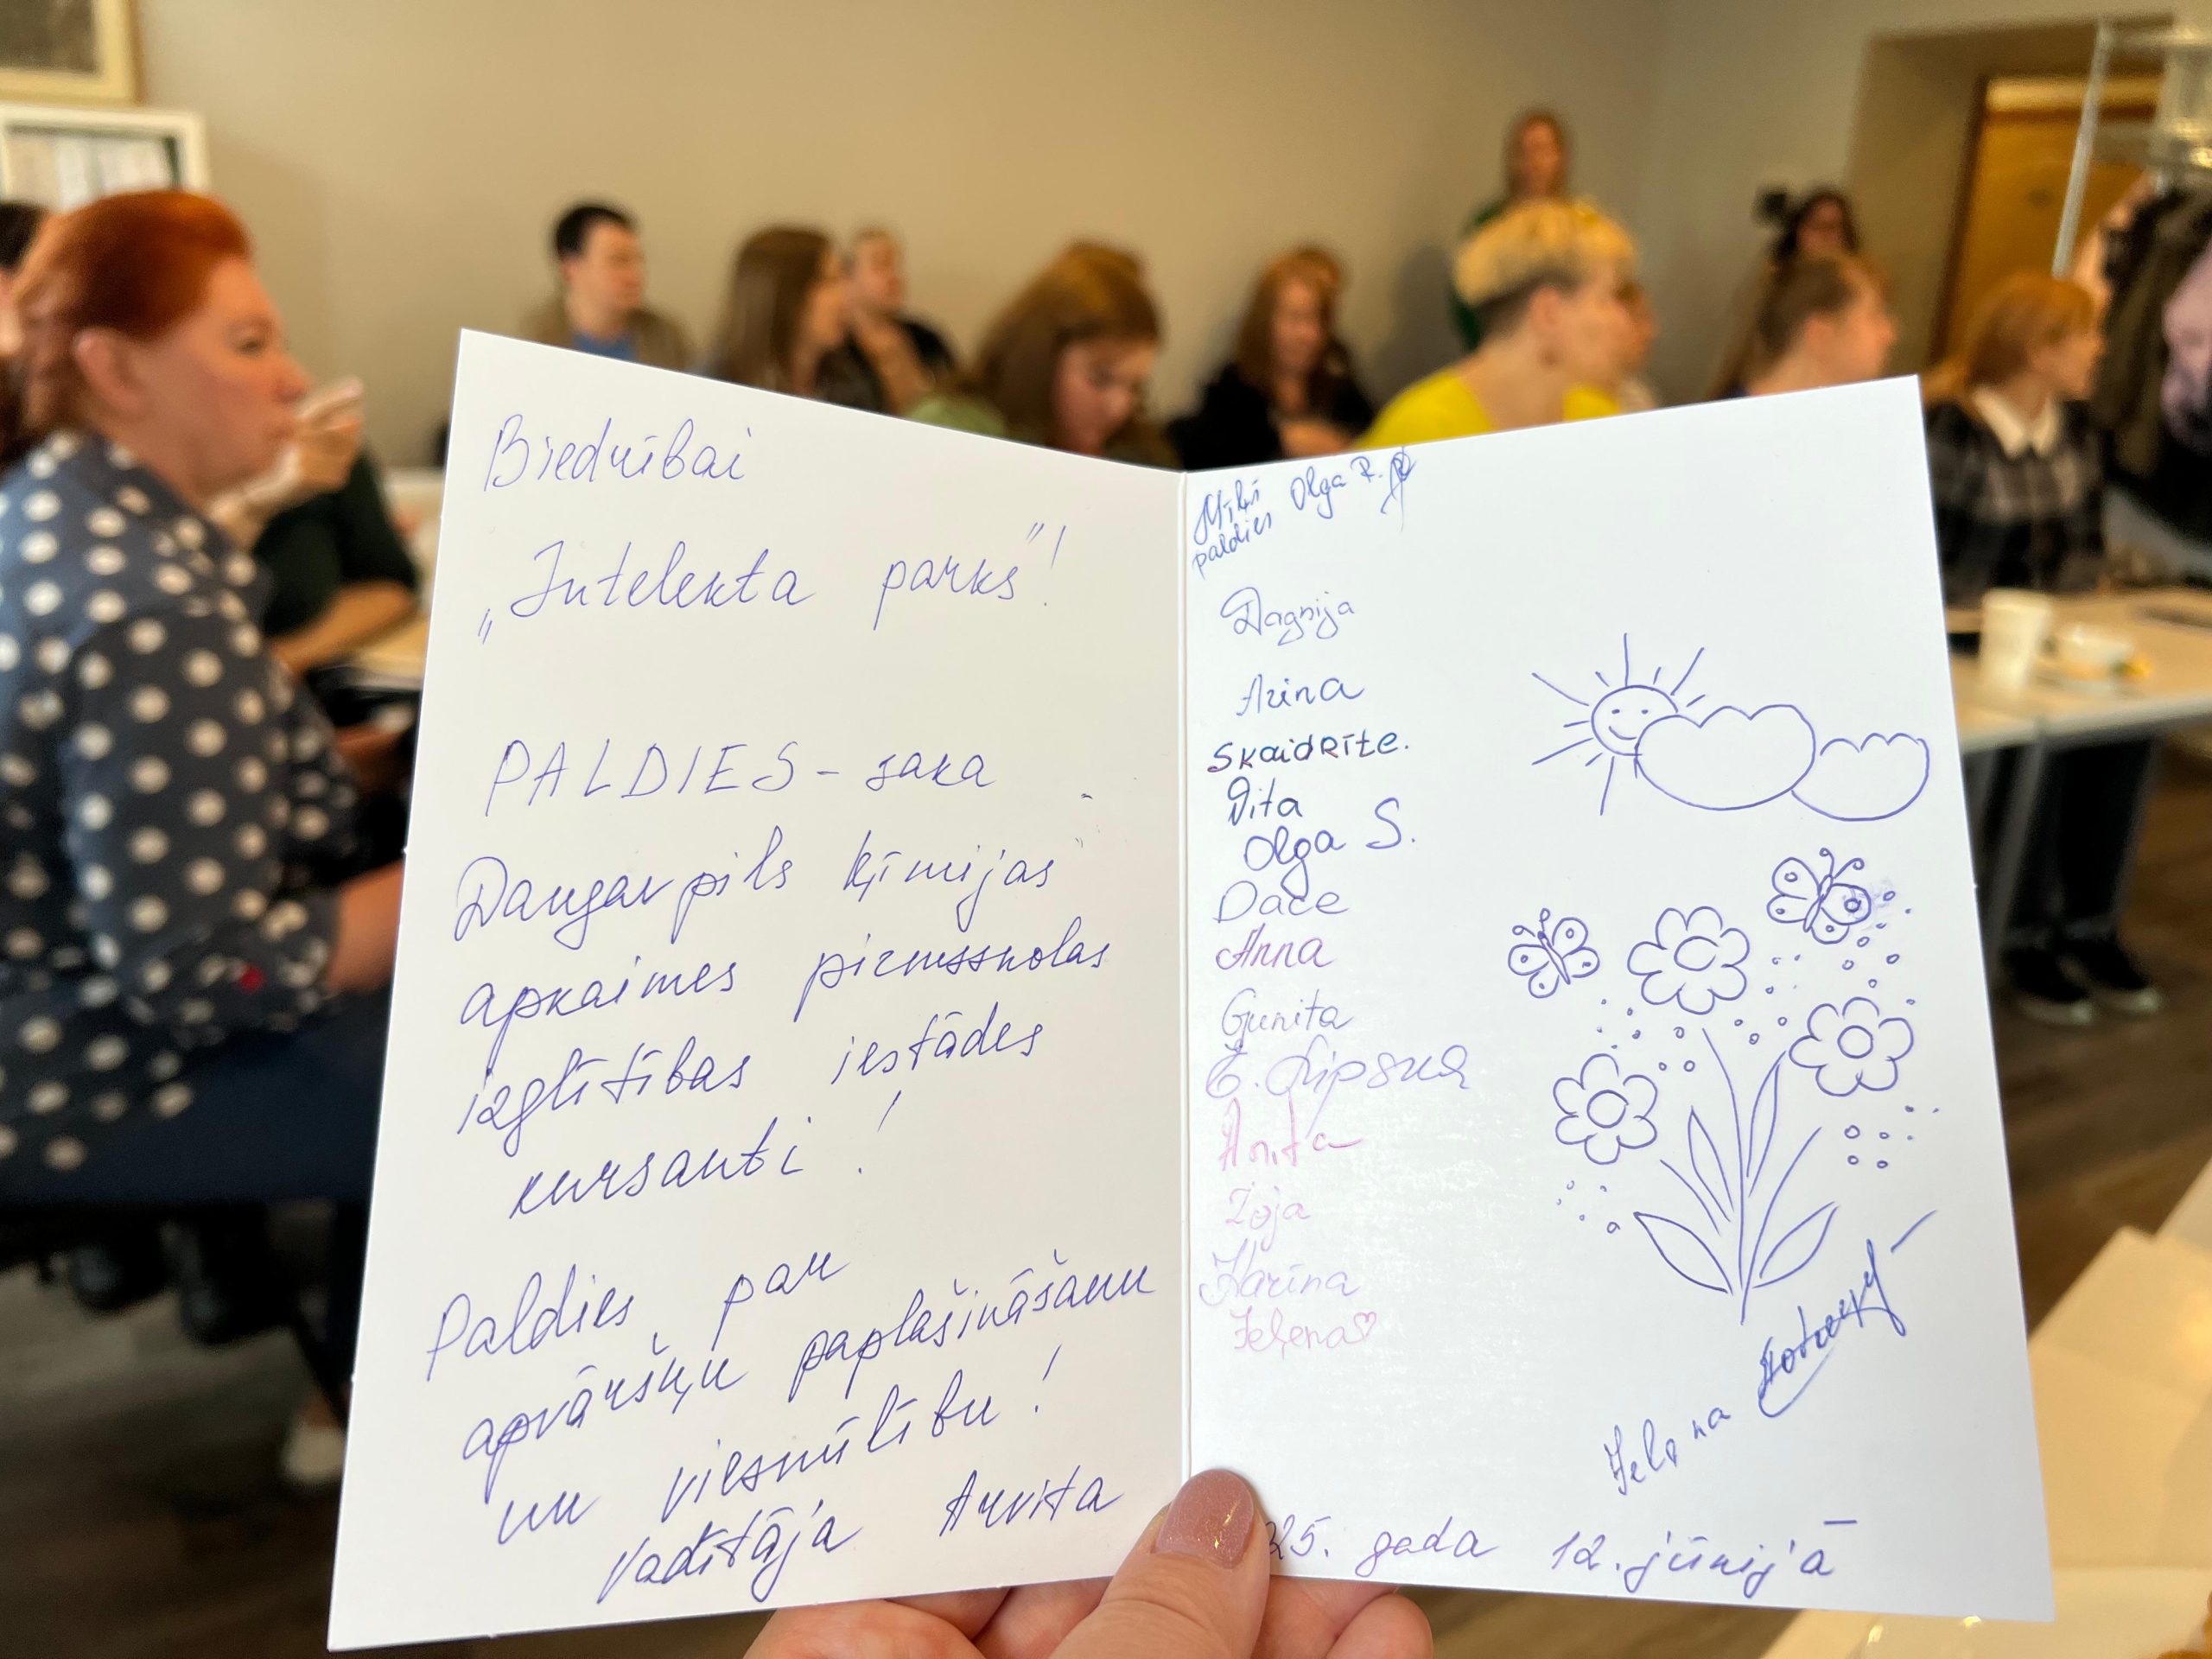 Biedrībai
„Intelekta parks"!
PALDIES - saka
Daugavpils Ķīmijas
apkaimes pirmsskolas
izglītības iestādes
kursanti!
Paldies par
apvāršņu paplašināšanu
un viesmīlību!
Vadītāja Arvita
Mīļš Olga R.
paldies
Dagnija
Arina
Skaidrīte.
Vita
Olga S.
Dace
Anna
Gunita
Lipska
Anita
Zoja
Karīna
Jeļena♡
Jeļena
25. gada 12. jūnijā